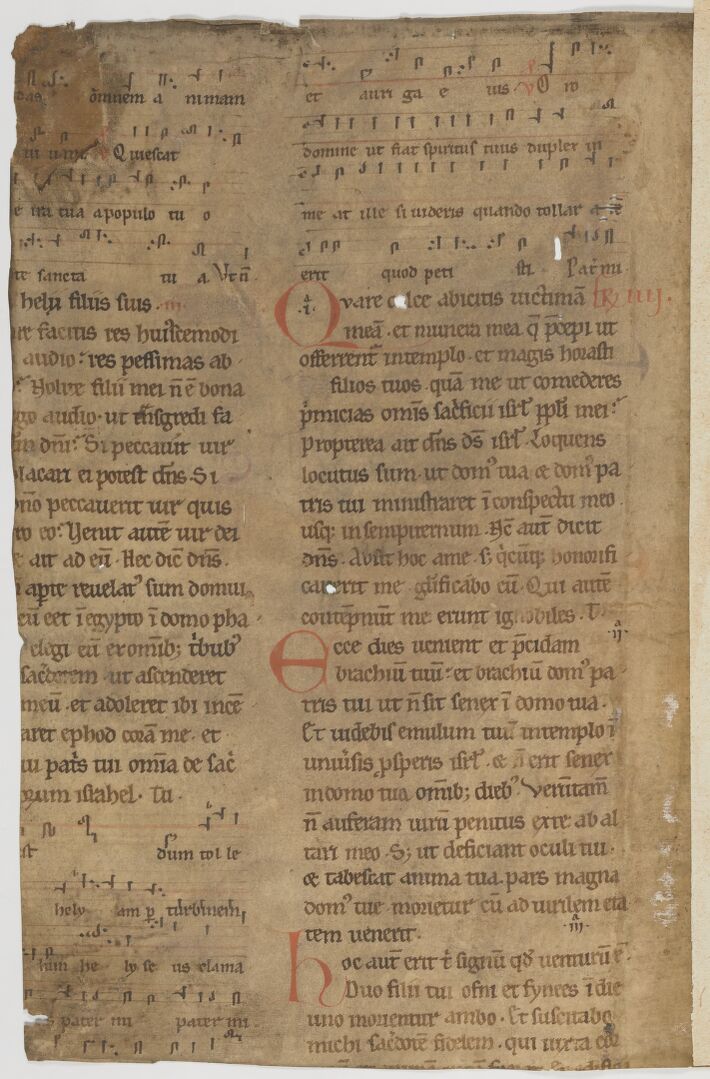 das. omnem a nimam
Quiescat
ira tua apopulo tu o
te sancta tu a. Vt ñ
hely filiis suis.
re facitis res huiscemodi
audio· res pessimas ab
Nolite filii mei ñ ē bona
audio· ut tñsgredi fa
dñi? Si peccavit uir
placari ei potest dñs. Si
peccauerit uir quis
eo? Uenit autē uir dei
ait ad eū. Hec dic̄ dñs.
apte reuelatꝰ sum domui
cū eēt ī egypto ī domo pha
elegi eū ex omib; t̉bubꝰ
sac̉dotem ut ascenderet
meū. et adoleret ibi incē
aret ephod corā me. et
pat̉s tui omia de sac̉
israhel. Tu.
dum tol le
hely am p̱ turbinem
he ly se us clama
pater mi pater mi
et auri ga e ius. V O ro
domine ut fiat spiritus tuus dupler in
me at ille si uideris quando tollar a te
erit quod peti sti. Pat̉ mi.
Quare calce abicitis uictimā
meā. et munera mea q̄ p̄cepi ut
offerrent̉ intemplo. et magis honasti
filios tuos. quā me ut comederes
p̉micias omīs sac̉ficii isrl̄ ppl̄i mei?
Propterea ait dñs ds̄ isrl̄. Loquens
locutus sum. ut domꝰ tua & domꝰ pa
tris tui ministraret ī conspectu meo
usq; insempiternum. Nc̄ aut̄ dicit
dñs. Absit hoc ame. s; q̉cūq; honorifi
cauerit me gl̉ificabo eū. Qui autē
contēpnūt me erunt ignobiles. T
Ecce dies uenient et p̄cidam
brachiū tuū? et brachiū domꝰ pa
tris tui ut ñ sit senex ī domo tua.
Et uidebis emulum tuū intemplo ī
uniūsis p̱speris isrl̄. & ñ erit senex
indomo tua omib; diebꝰ. Verūtam̄
ñ auferam uirū penitus exte ab al
tari meo. S; ut deficiant oculi tui.
& tabescat anima tua. pars magna
domꝰ tue morietur cū ad uirilem eta
tem uenerit.
hoc aut̄ erit t̉ signū qd̄ uenturū ē.
Duo filii tui ofni et fynees ī die
uno morientur ambo. Et suscitabo
michi sac̉dotē fidelem. qui iuxta cor